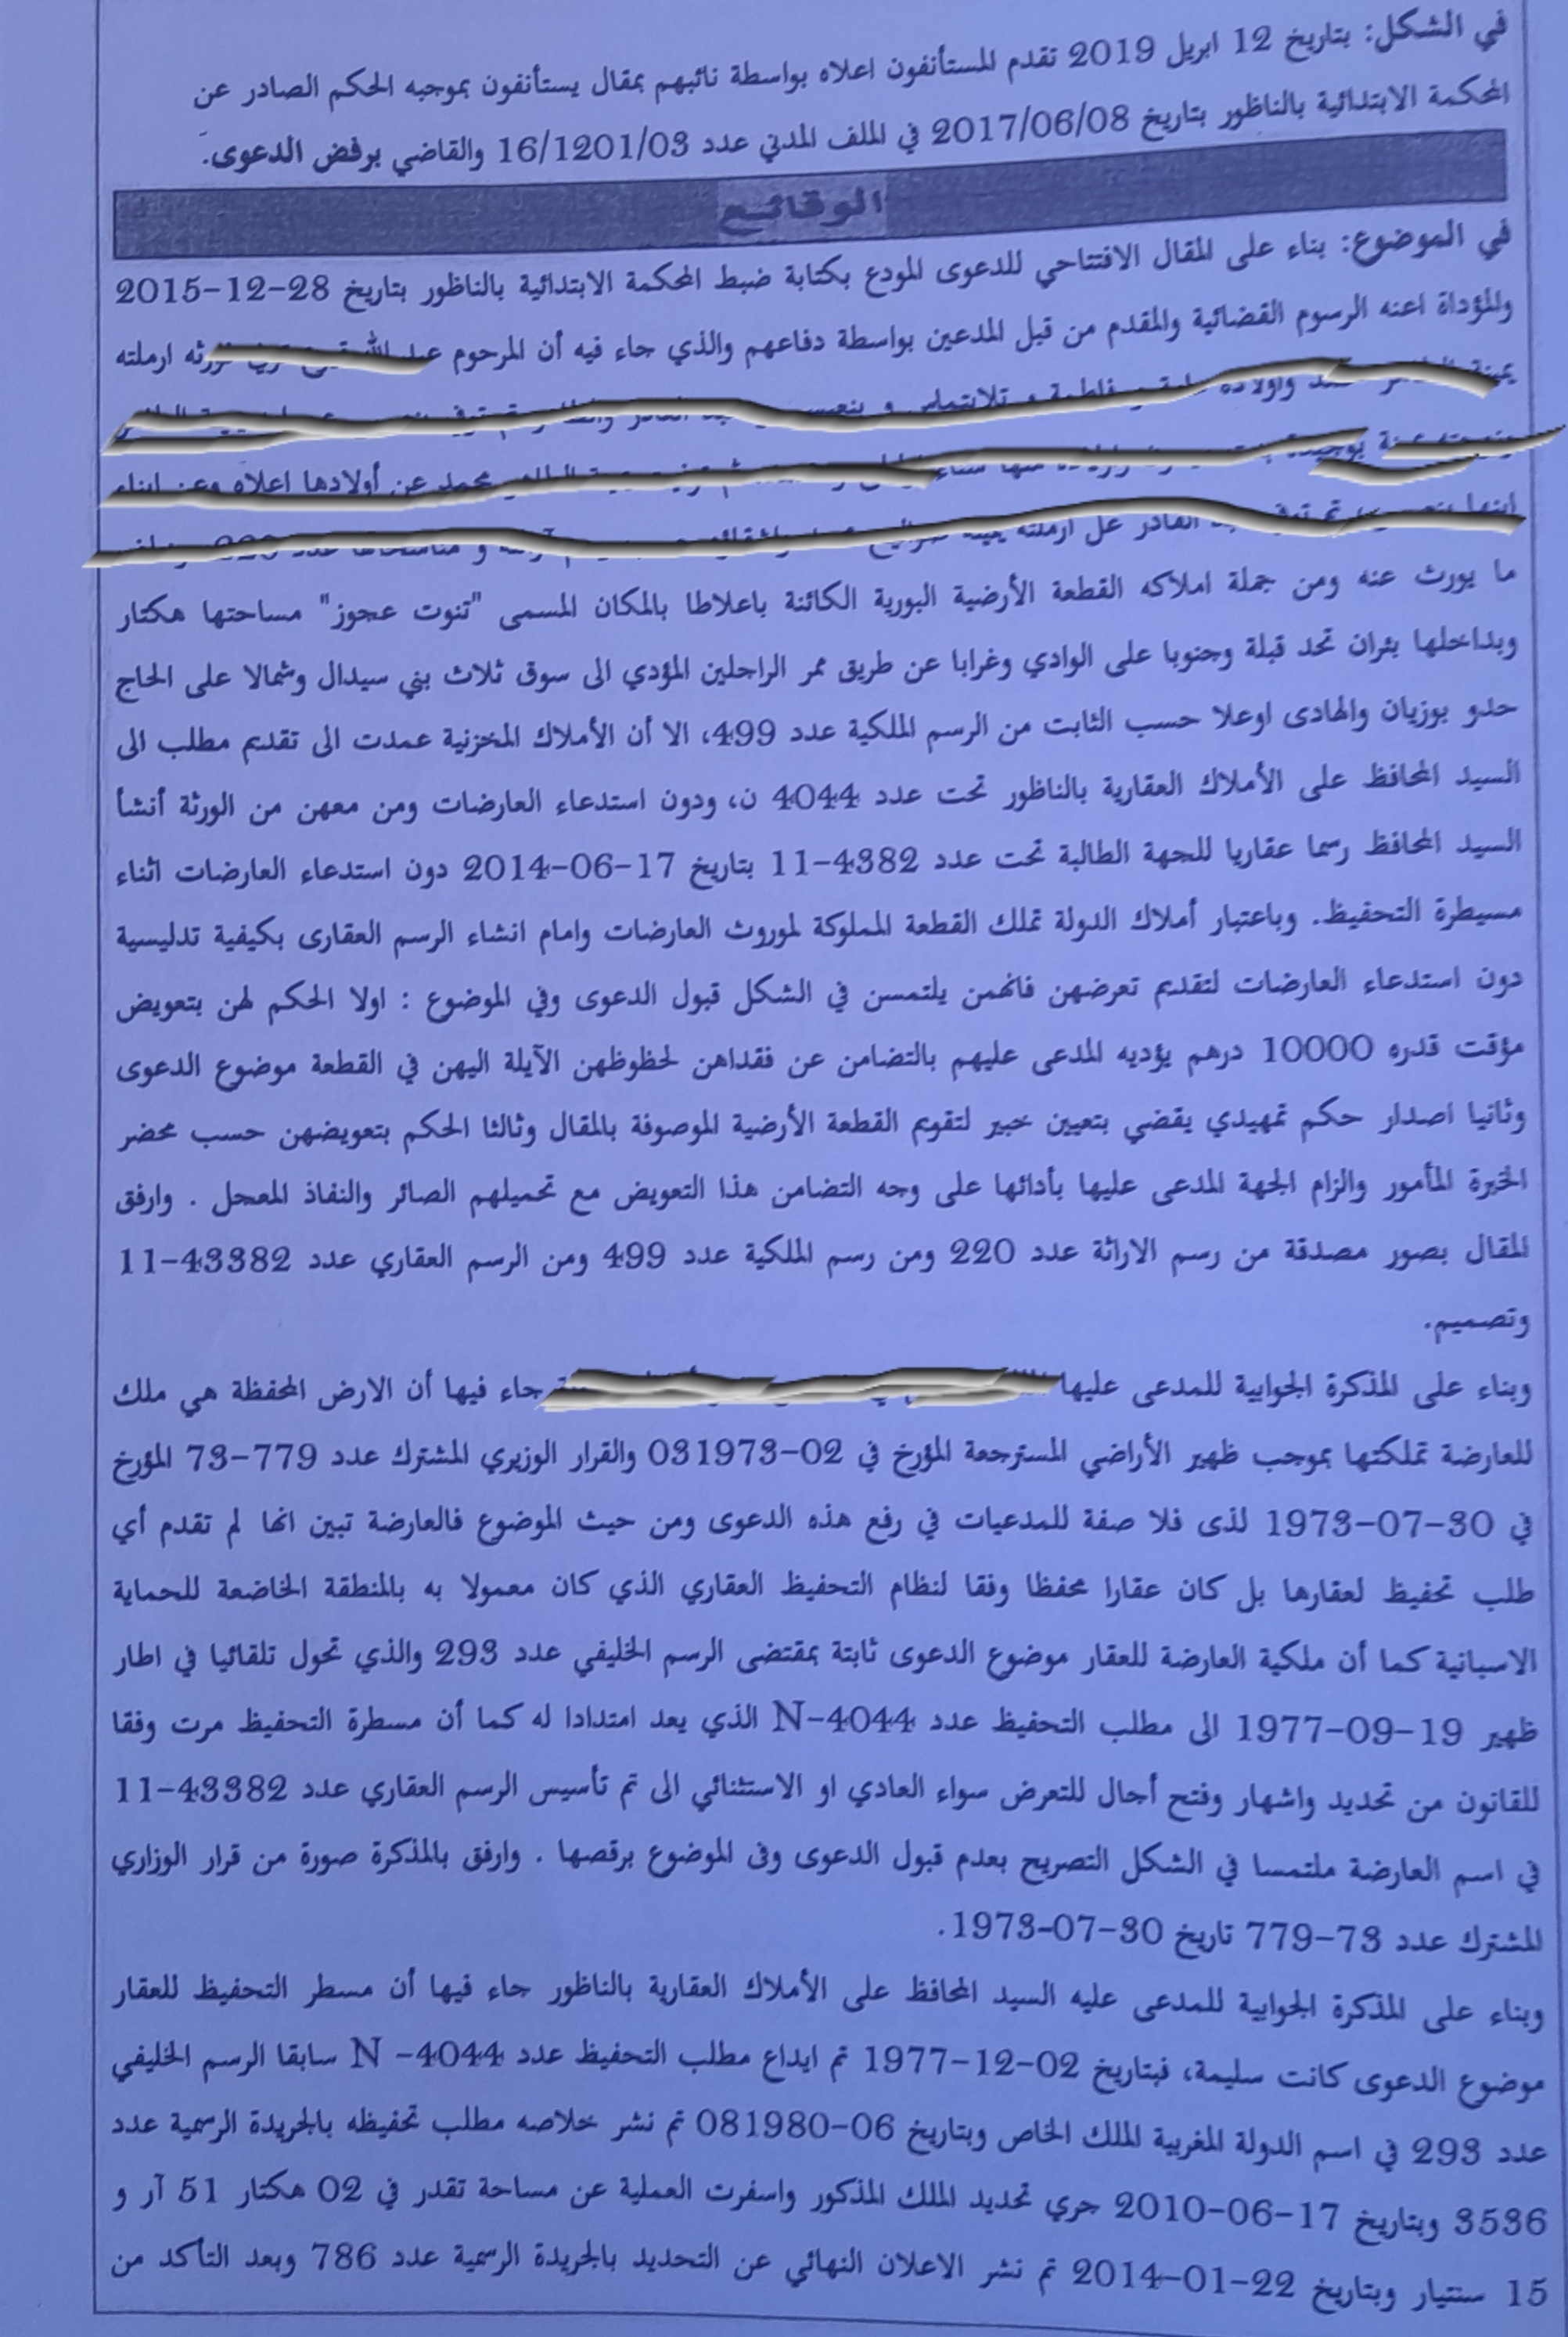 في الشكل: بتاريخ 12 ابريل 2019 تقدم المستأنفون اعلاه بواسطة نائبهم بمقال يستأنفون بموجبه الحكم الصادر عن
المحكمة الابتدائية بالناظور بتاريخ 2017/06/08 في الملف المدني عدد 16/1201/03 والقاضي برفض الدعوى.
الوقائع
في الموضوع: بناء على المقال الافتتاحي للدعوى المودع بكتابة ضبط المحكمة الابتدائية بالناظور بتاريخ 28-12-2015
والمؤداة اعنه الرسوم القضائية والمقدم من قبل المدعين بواسطة دفاعهم والذي جاء فيه أن المرحوم ارملته
محمد عن أولادها اعلاه وعن ابناء
ما يورث عنه ومن جملة املاكه القطعة الأرضية البورية الكائنة باعلاطا بالمكان المسمى "تنوت عجوز" مساحتها هكتار
وبداخلها بئران تحد قبلة وجنوبا على الوادي وغرابا عن طريق ممر الراحلين المؤدي الى سوق ثلاث بني سيدال وشمالا على الحاج
حدو بوزيان والهادى اوعلا حسب الثابت من الرسم الملكية عدد 499، الا أن الأملاك المخزنية عمدت الى تقديم مطلب الى
السيد المحافظ على الأملاك العقارية بالناظور تحت عدد 4044 ن، ودون استدعاء العارضات ومن معهن من الورثة أنشأ
السيد المحافظ رسما عقاريا للجهة الطالبة تحت عدد 4382-11 بتاريخ 17-06-2014 دون استدعاء العارضات اثناء
مسيطرة التحفيظ. وباعتبار أملاك الدولة تملك القطعة المملوكة لموروث العارضات وامام انشاء الرسم العقارى بكيفية تدليسية
دون استدعاء العارضات لتقديم تعرضهن فانهمن يلتمسن في الشكل قبول الدعوى وفي الموضوع : اولا الحكم لهن بتعويض
مؤقت قدره 10000 درهم يؤديه المدعى عليهم بالتضامن عن فقداهن لحظوظهن الآيلة اليهن في القطعة موضوع الدعوى
وثانيا اصدار حكم تمهيدي يقضي بتعيين خبير لتقويم القطعة الأرضية الموصوفة بالمقال وثالثا الحكم بتعويضهن حسب محضر
الخبرة المأمور والزام الجهة المدعى عليها بأدائها على وجه التضامن هذا التعويض مع تحميلهم الصائر والنفاذ المعجل . وارفق
المقال بصور مصدقة من رسم الاراثة عدد 220 ومن رسم الملكية عدد 499 ومن الرسم العقاري عدد 43382-11
وتصميم.
وبناء على المذكرة الجوابية للمدعى عليها جاء فيها أن الارض المحفظة هي ملك
للعارضة تملكتها بموجب ظهير الأراضي المسترجعة المؤرخ في 02-031973 والقرار الوزيري المشترك عدد 779-73 المؤرخ
في 30-07-1973 لذى فلا صفة للمدعيات في رفع هذه الدعوى ومن حيث الموضوع فالعارضة تبين انها لم تقدم أي
طلب تحفيظ لعقارها بل كان عقارا محفظا وفقا لنظام التحفيظ العقاري الذي كان معمولا به بالمنطقة الخاضعة للحماية
الاسبانية كما أن ملكية العارضة للعقار موضوع الدعوى ثابتة بمقتضى الرسم الخليفي عدد 293 والذي تحول تلقائيا في اطار
ظهير 19-09-1977 الى مطلب التحفيظ عدد 4044-N الذي يعد امتدادا له كما أن مسطرة التحفيظ مرت وفقا
للقانون من تحديد واشهار وفتح أجال للتعرض سواء العادي او الاستثنائي الى تم تأسيس الرسم العقاري عدد 43382-11
في اسم العارضة ملتمسا في الشكل التصريح بعدم قبول الدعوى وفى الموضوع برقصها . وارفق بالمذكرة صورة من قرار الوزاري
المشترك عدد 73-779 تاريخ 30-07-1973.
وبناء على المذكرة الجوابية للمدعى عليه السيد المحافظ على الأملاك العقارية بالناظور جاء فيها أن مسطر التحفيظ للعقار
موضوع الدعوى كانت سليمة، فبتاريخ 02-12-1977 تم ايداع مطلب التحفيظ عدد 4044- N سابقا الرسم الخليفي
عدد 293 في اسم الدولة المغربية الملك الخاص وبتاريخ 06-081980 تم نشر خلاصه مطلب تحفيظه بالجريدة الرسمية عدد
3536 وبتاريخ 17-06-2010 جري تحديد الملك المذكور واسفرت العملية عن مساحة تقدر في 02 هكتار 51 آر و
15 سنتيار وبتاريخ 22-01-2014 تم نشر الاعلان النهائي عن التحديد بالجريدة الرسمية عدد 786 وبعد التأكد من